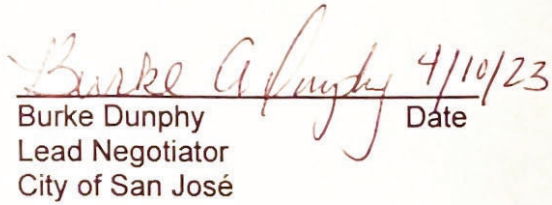 Burke A Dunphy 4/10/23
Burke Dunphy Date
Lead Negotiator
City of San José